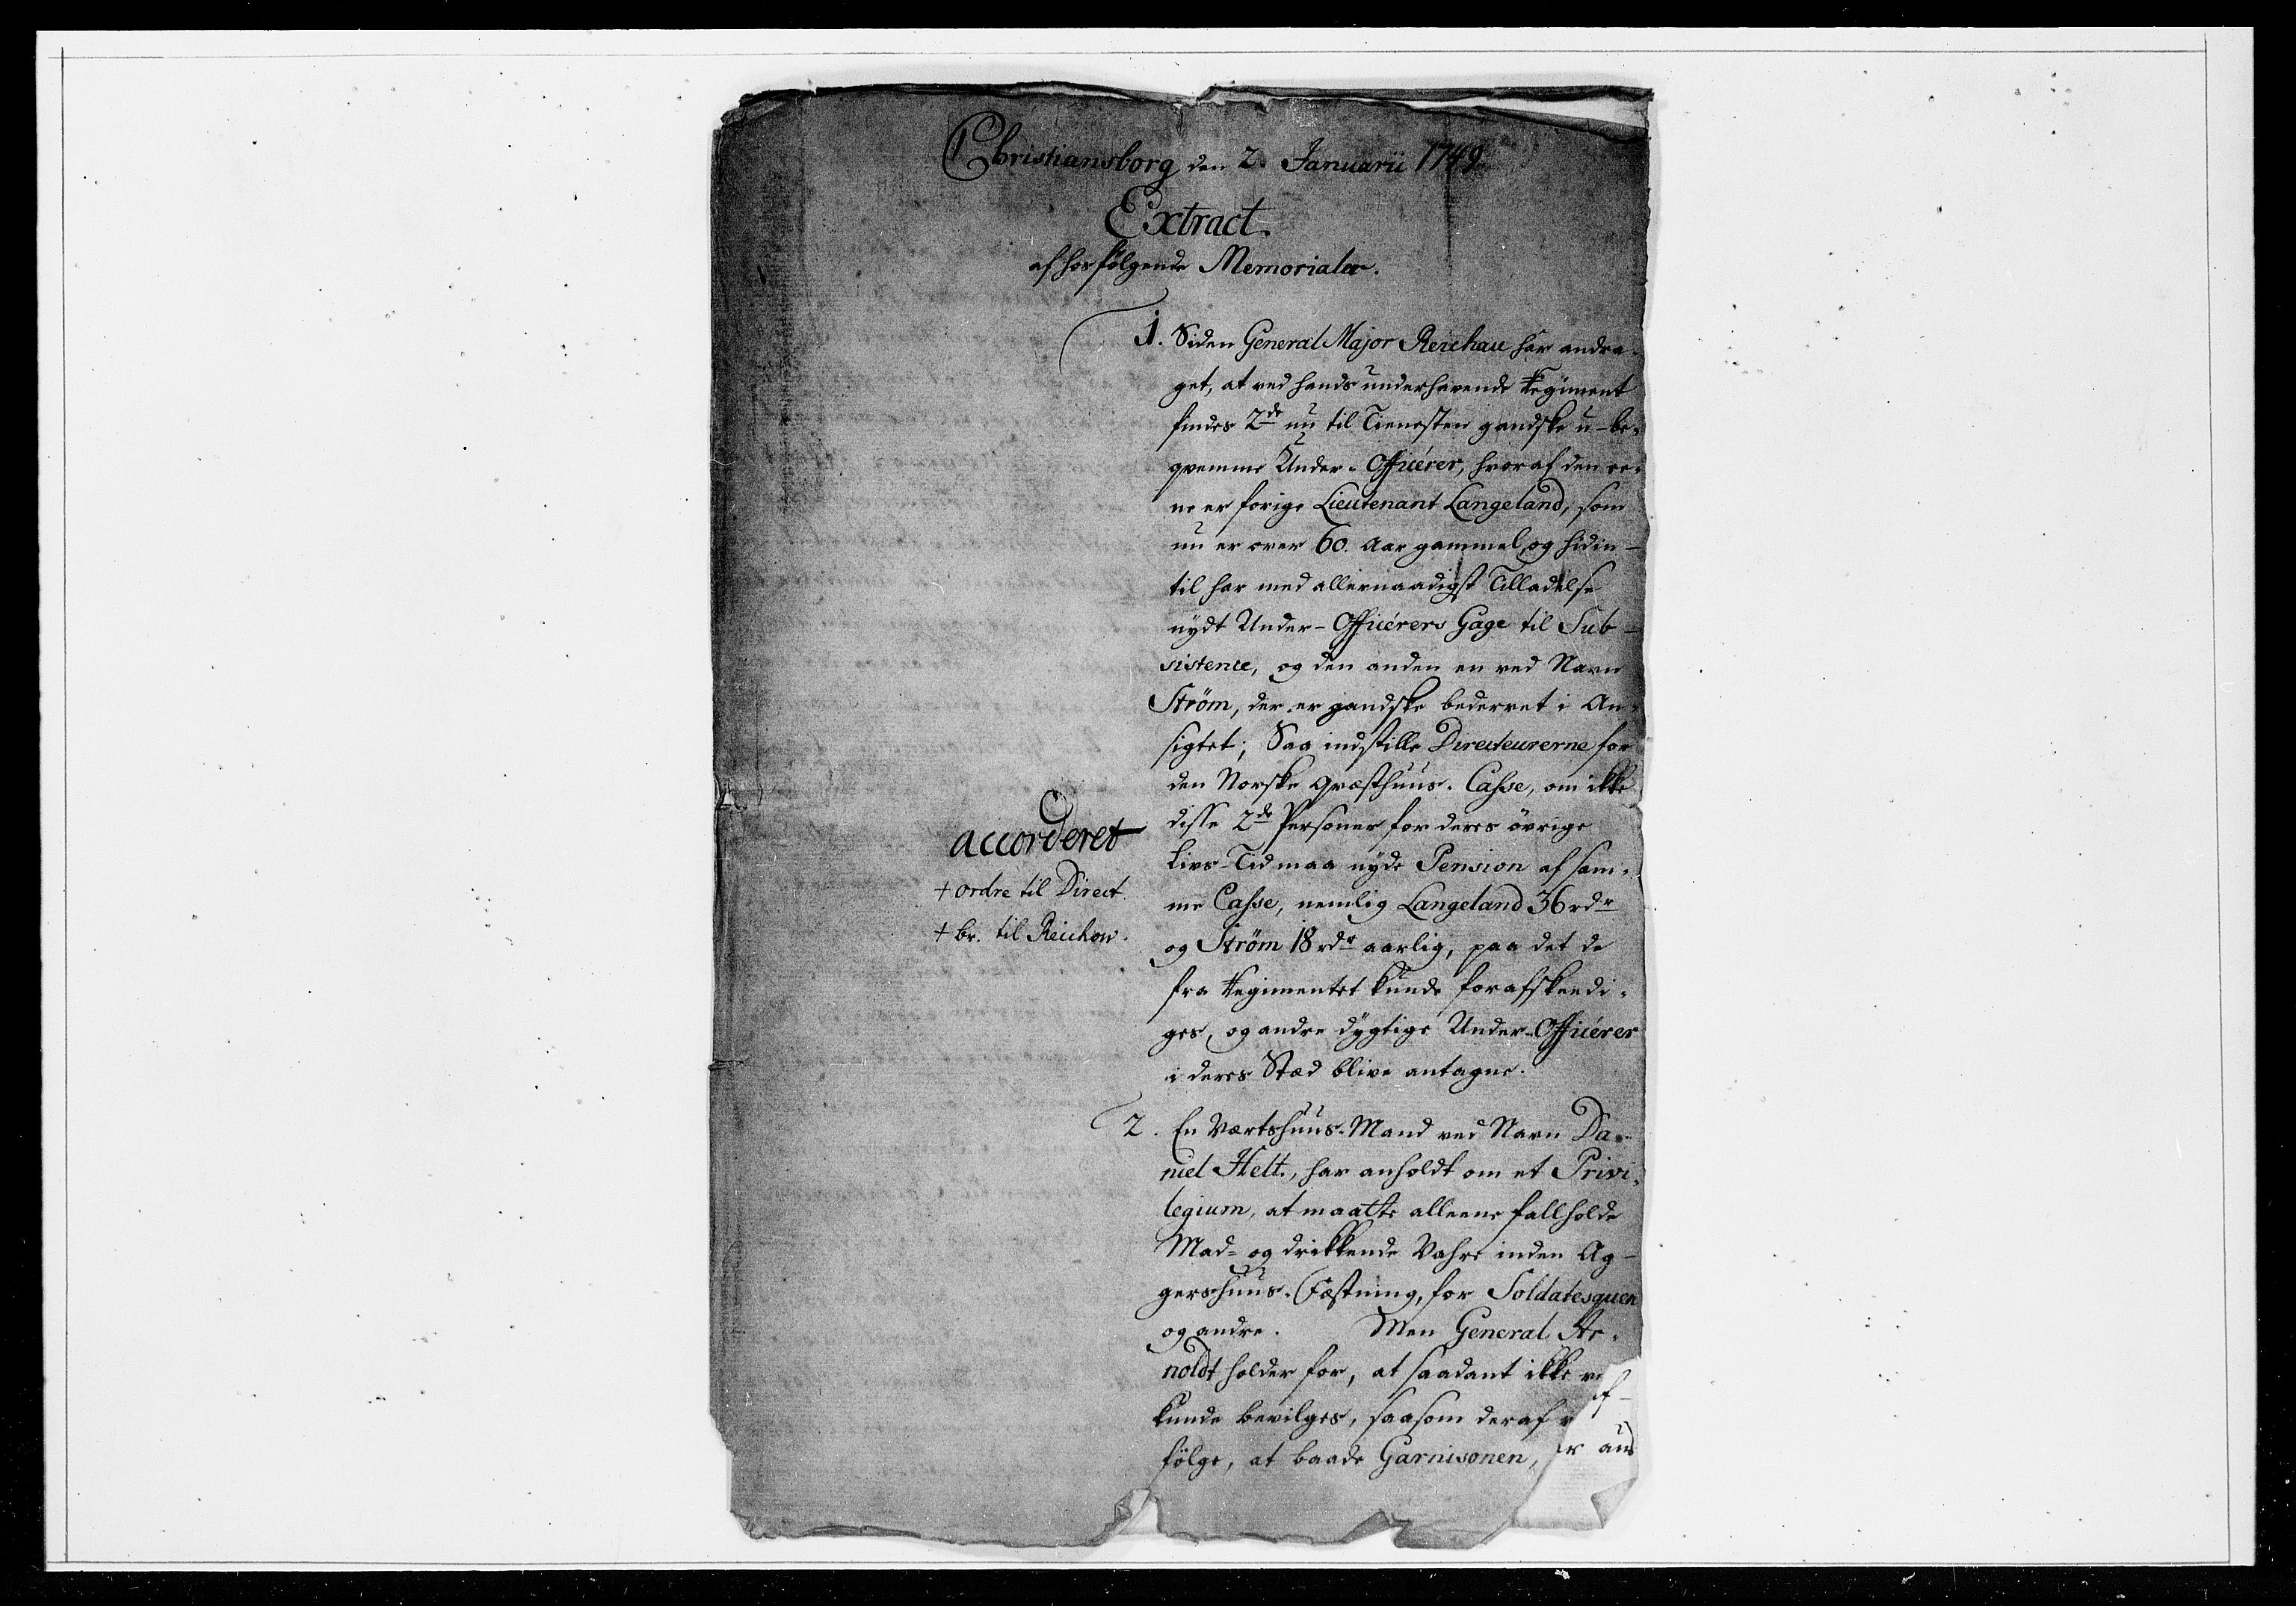 Christiansborg den 2. Januarii 1749.
Extract.
af hosfölgende Memorialer.
1. Siden General Major Reichau har andra-
get, at ved hands underhavende Regiment
findes 2de nu til Tienesten gandske u-be-
qvemme Under-Officérer, hvoraf den ee-
ne er forige Lieutenant Langeland, som
nu er over 60. Aar gammel, og hidin-
til har med allernaadigst Tilladelse
nydt Under-Officérers Gage til Sub-
sistence, og den anden en ved Navn
Ström, der er gandske bedervet i An-
sigtet; Saa indstille Directeurerne for
den Norske Qvæsthuus-Casse, om ikke
disse 2de Personer for deres övrige
Livs-Tid maa nyde Pension af sam-
me Casse, nemlig Langeland 36 rdr
og Ström 18 rdr aarlig, paa det de
fra Regimentet kunde forafskeedi-
ges, og andre dygtige Under-Officérer
i deres Stæd blive antagne.
accorderet
+ ordre til Direct.
+ br. til Reichow.
2. En Værtshuus-Mand ved Navn Da-
niel Helt, har anholdt om et Privi-
legium, at maatte alleene fallholde
Mad- og drikkende Vahre inden Ag-
gershuus-Fæstning, for Soldatesquen
og andre. Men General Ar-
noldt holder for, at saadant ikke
kunde bevilges, saasom deraf
fölge, at baade Garnisonen,